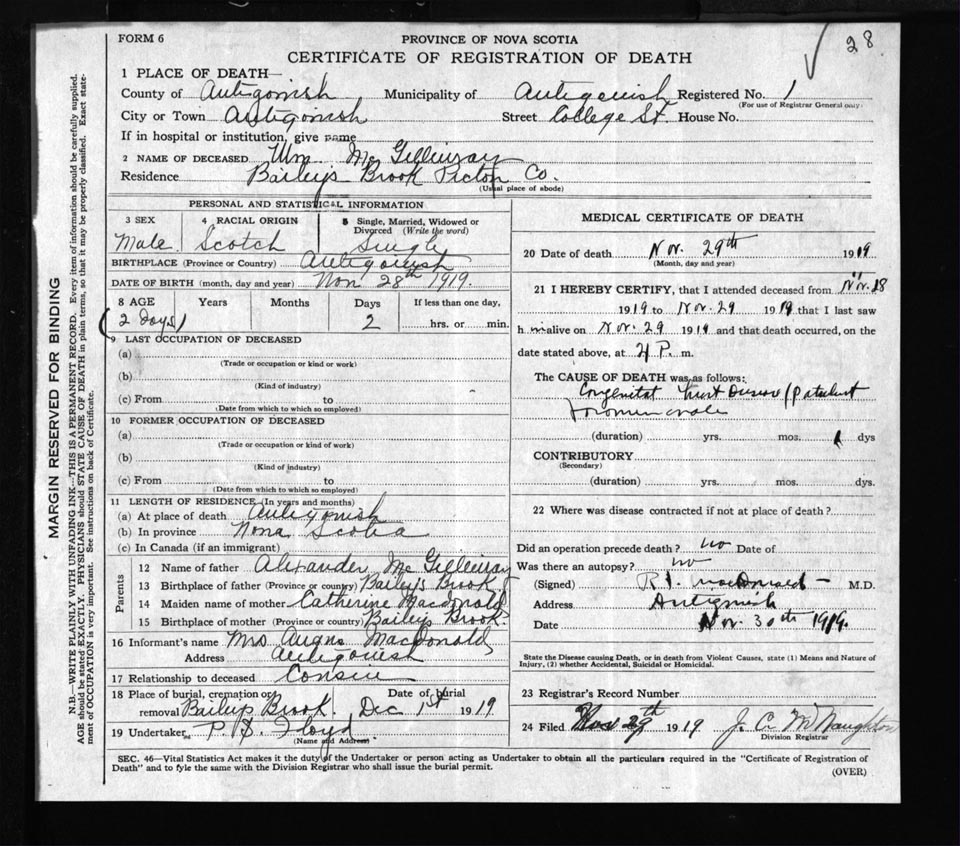 FORM 6
PROVINCE OF NOVA SCOTIA
28
CERTIFICATE OF REGISTRATION OF DEATH
1 PLACE OF DEATH—
County of Antigonish Municipality of Antigonish Registered No. 1
(For use of Registrar General only)
City or Town Antigonish Street College St. House No.
If in hospital or institution, give name
2 NAME OF DECEASED Wm. Mc Gillivray
Residence Baileys Brook Pictou Co.
(Usual place of abode)
PERSONAL AND STATISTICAL INFORMATION
3 SEX 4 RACIAL ORIGIN 5 Single, Married, Widowed or Divorced (Write the word)
Male Scotch Single
BIRTHPLACE (Province or Country) Antigonish
DATE OF BIRTH (month, day and year) Nov. 28th 1919.
8 AGE Years Months Days If less than one day,
(2 days) 2 hrs. or min.
9 LAST OCCUPATION OF DECEASED
(a)
(Trade or occupation or kind or work)
(b)
(Kind of industry)
(c) From to
(Date from which to which so employed)
10 FORMER OCCUPATION OF DECEASED
(a)
(Trade or occupation or kind of work)
(b)
(Kind of industry)
(c) From to
(Date from which to which so employed)
11 LENGTH OF RESIDENCE (In years and months)
(a) At place of death Antigonish
(b) In province Nova Scotia
(c) In Canada (if an immigrant)
Parents
12 Name of father Alexander Mc Gillivray
13 Birthplace of father (Province or country) Baileys Brook
14 Maiden name of mother Catherine Macdonald
15 Birthplace of mother (Province or country) Baileys Brook
16 Informant's name Mrs Angus MacDonald
Address Antigonish
17 Relationship to deceased Consin
18 Place of burial, cremation or removal Baileys Brook. Date of burial Dec 1st 1919
19 Undertaker P. S. Floyd
(Name and Address)
MEDICAL CERTIFICATE OF DEATH
20 Date of death Nov. 29th 1919
(Month, day and year)
21 I HEREBY CERTIFY, that I attended deceased from Nov. 28
1919 to Nov. 29 1919 that I last saw
h im alive on Nov. 29 1919 and that death occurred, on the
date stated above, at 4 P. m.
The CAUSE OF DEATH was as follows:
Congenital Heart Disease (Patulent
(duration) yrs. mos. 1 dys
CONTRIBUTORY
(Secondary)
(duration) yrs. mos. dys.
22 Where was disease contracted if not at place of death?
Did an operation precede death? no Date of
Was there an autopsy? no
(Signed) R. F. MacDonald — M.D.
Address Antigonish
Date Nov. 30th 1919.
State the Disease causing Death, or in death from Violent Causes, state (1) Means and Nature of
Injury, (2) whether Accidental, Suicidal or Homicidal.
23 Registrar's Record Number
24 Filed Nov 29 1919 J. C. McNaughton
Division Registrar
SEC. 46—Vital Statistics Act makes it the duty of the Undertaker or person acting as Undertaker to obtain all the particulars required in the "Certificate of Registration of
Death" and to fyle the same with the Division Registrar who shall issue the burial permit.
(OVER)
MARGIN RESERVED FOR BINDING
N.B.—WRITE PLAINLY WITH UNFADING INK—THIS IS A PERMANENT RECORD. Every item of information should be carefully supplied.
AGE should be stated EXACTLY. PHYSICIANS should STATE CAUSE OF DEATH in plain terms, so that it may be properly classified. Exact state-
ment of OCCUPATION is very important. See instructions on back of Certificate.